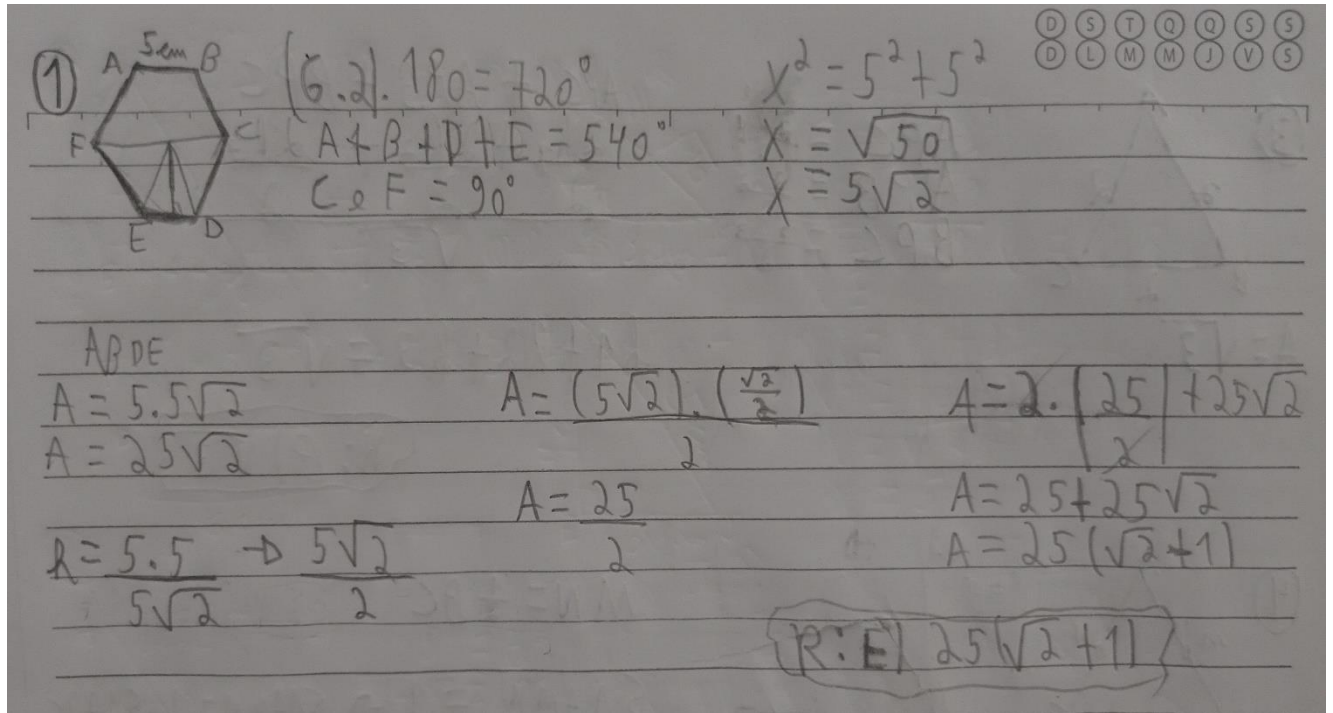 D S T Q Q S S
D L M M J V S
1
5cm
A B
F C
E D
(6.2).180=720°
A+B+D+E=540°
C e F=90°
x²=5²+5²
x=√50
x=5√2
ABDE
A=5.5√2
A=25√2
R=5.5/5√2 → 5√2/2
A=(5√2).(√2/2)/2
A=25/2
A=2.(25/2)+25√2
A=25+25√2
A=25(√2+1)
R:E) 25(√2+1)